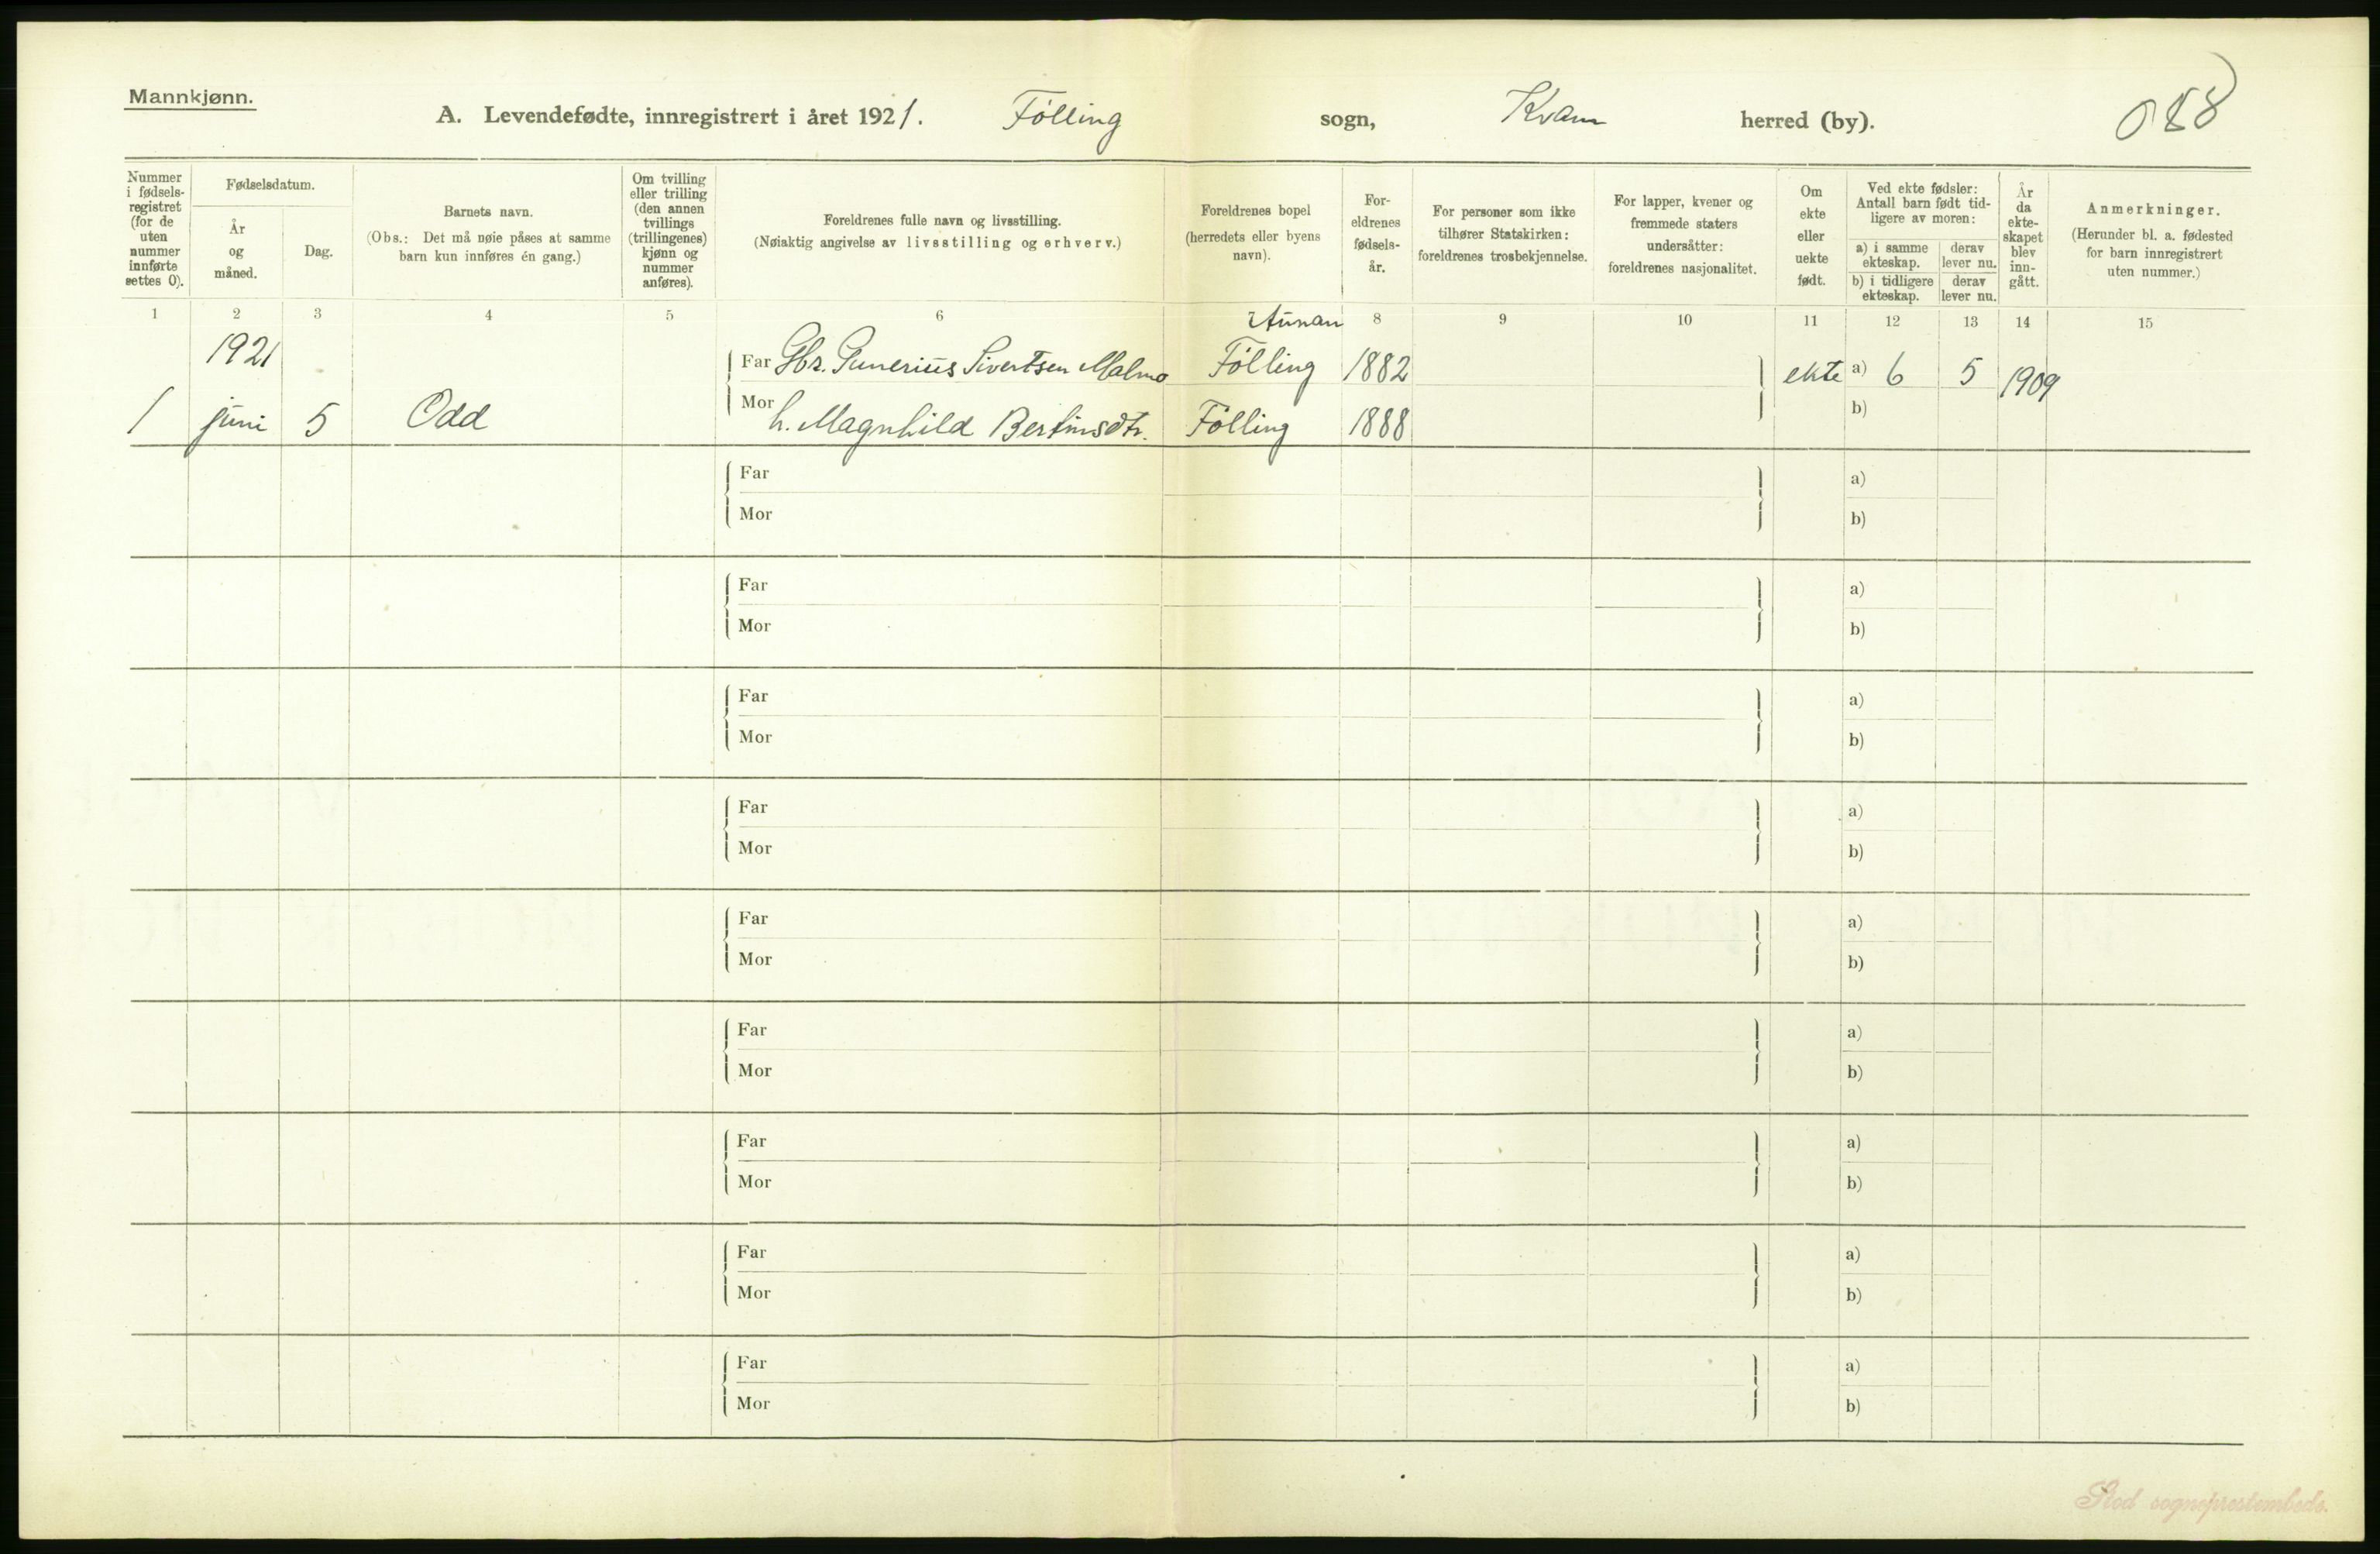 Mannkjønn.
A. Levendefødte, innregistrert i året 1921. Følling sogn, Kvam herred (by).
088
Nummer i fødsels-registret (for de uten nummer innførte settes 0).
Fødselsdatum.
År og måned.
Dag.
Barnets navn.
(Obs.: Det må nøie påses at samme barn kun innføres én gang.)
Om tvilling eller trilling (den annen tvillings (trillingenes) kjønn og nummer anføres).
Foreldrenes fulle navn og livsstilling.
(Nøiaktig angivelse av livsstilling og erhverv.)
Foreldrenes bopel (herredets eller byens navn).
For-eldrenes fødsels-år.
For personer som ikke tilhører Statskirken: foreldrenes trosbekjennelse.
For lapper, kvener og fremmede staters undersåtter: foreldrenes nasjonalitet.
Om ekte eller uekte født.
Ved ekte fødsler: Antall barn født tid-ligere av moren:
a) i samme ekteskap.
derav lever nu.
b) i tidligere ekteskap.
derav lever nu.
År da ekte-skapet blev inn-gått.
Anmerkninger.
(Herunder bl. a. fødested for barn innregistrert uten nummer.)
1 2 3 4 5 6 8 9 10 11 12 13 14 15
Aunan
1921 Far Gbr. Gunerius Sivertsen Malmo Følling 1882 ekte a) 6 5 1909
1 juni 5 Odd Mor h. Magnhild Bertinsdtr. Følling 1888 b)
Far a)
Mor b)
Far a)
Mor b)
Far a)
Mor b)
Far a)
Mor b)
Far a)
Mor b)
Far a)
Mor b)
Far a)
Mor b)
Far a)
Mor b)
Far a)
Mor b)
Stod sogneprestembede.